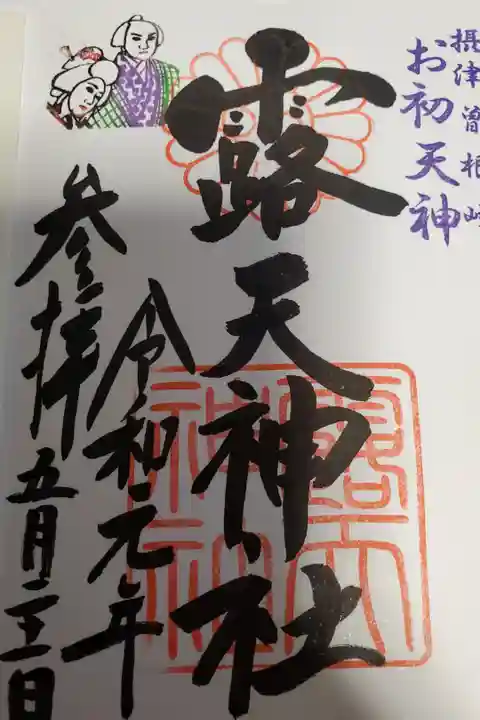 摂津曽根崎
お初天神
露天神社
令和元年
参拝
五月二十三日